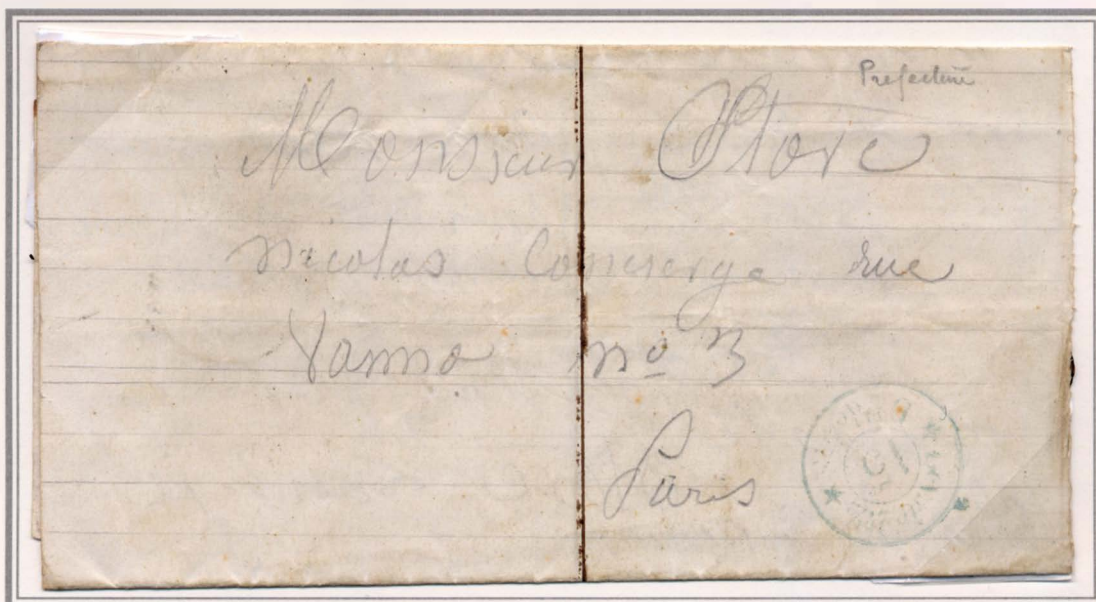 Prefecture
Monsieur Store
Nicolas Concierge rue
Vanno no 3
Paris